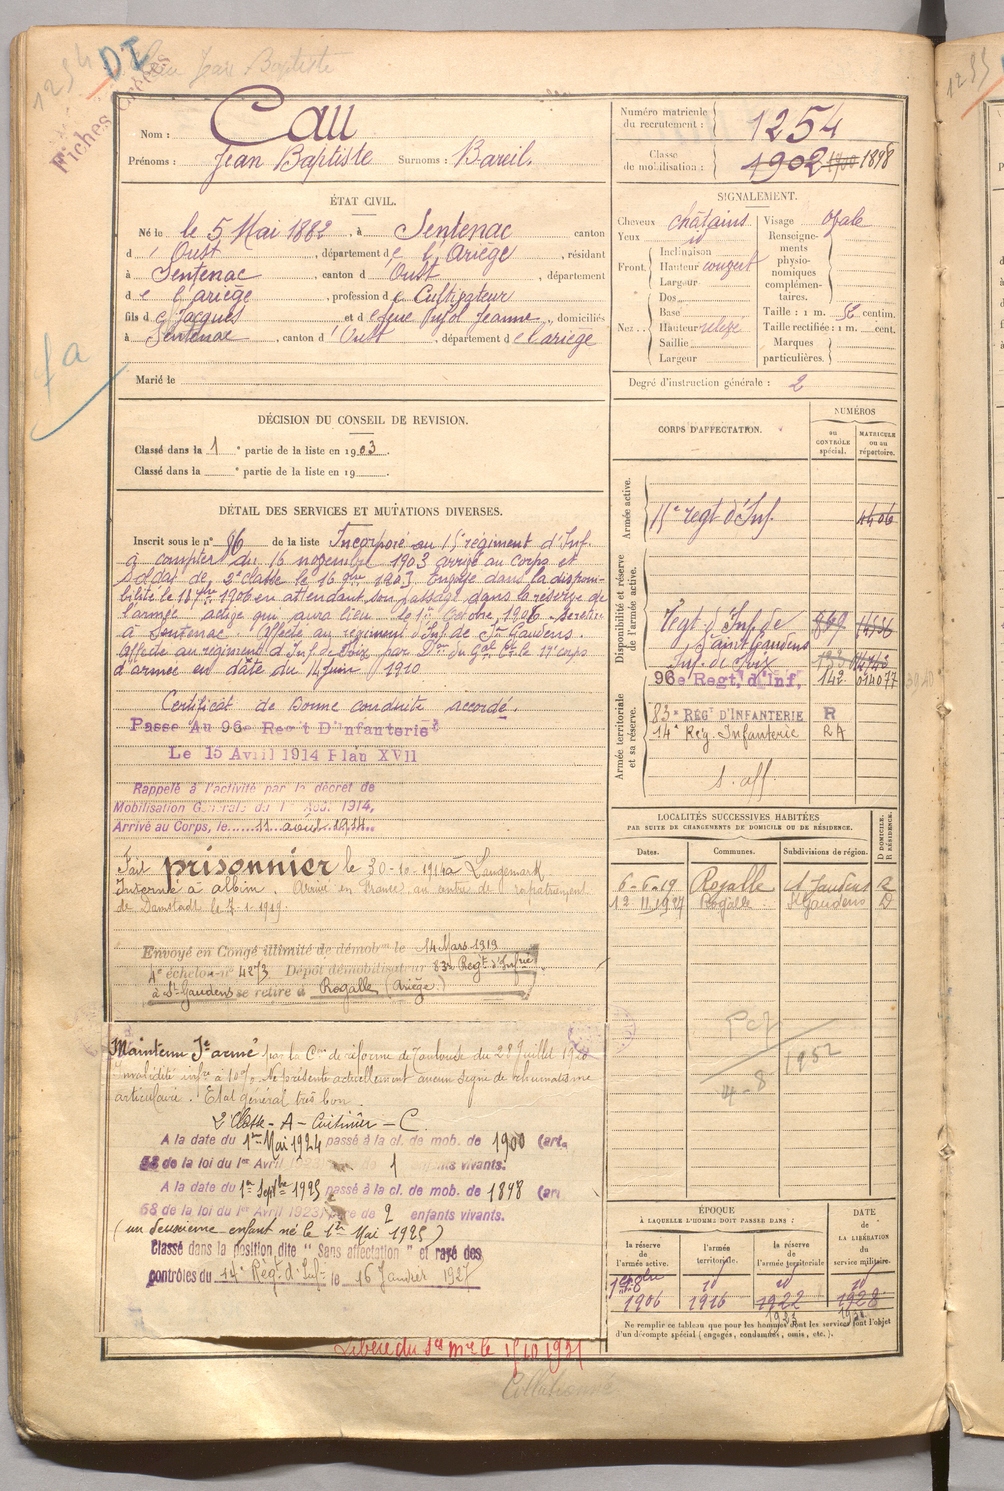 1254
DI
Cau Jean Baptiste
Fiches
fa
Nom : Cau
Prénoms : Jean Baptiste Surnoms : Bareil.
Numéro matricule du recrutement : 1254
Classe de mobilisation : 1902 1900 1898
ÉTAT CIVIL.
Né le le 5 Mai 1882, à Sentenac canton
d' Oust, département de l'Ariège, résidant
à Sentenac, canton d'Oust, département
de l'ariège, profession de Cultivateur
fils de Jacques et de feue Pujol Jeanne, domiciliés
à Sentenac, canton d'Oust, département de l'ariège
Marié le
SIGNALEMENT.
Cheveux châtains
Yeux id
Front Inclinaison
Hauteur couvert
Largeur
Nez Dos
Base
Hauteur relevé
Saillie
Largeur
Visage ovale
Renseignements physionomiques complémentaires.
Taille : 1 m. 56 centim.
Taille rectifiée : 1 m. cent.
Marques particulières.
Degré d'instruction générale : 2
DÉCISION DU CONSEIL DE REVISION.
Classé dans la 1 e partie de la liste en 1903.
Classé dans la e partie de la liste en 19
DÉTAIL DES SERVICES ET MUTATIONS DIVERSES.
Inscrit sous le n° 86 de la liste Incorporé au 15e régiment d'Inf.
à compter du 16 novembre 1903 arrivé au corps et
soldat de 2e classe le 16 9bre 1903. Envoyé dans la disponi-
bilité le 18 7bre 1906 en attendant son passage dans la réserve de
l'armée active qui aura lieu le 1er Octobre 1906 se retire
à Sentenac. Affecté au régiment d'Inf de St Gaudens.
Affecté au régiment d'Inf de Foix par Don du Gal Ct le 17e corps
d'armée en date du 14 juin 1910
Certificat de Bonne conduite accordé.
Passé Au 96e Regt D'Infanterie
Le 15 Avril 1914 Plan XVII
Rappelé à l'activité par le décret de
Mobilisation Générale du 1 Aoû. 1914,
Arrivé au Corps, le 11 août 1914
Fait prisonnier le 30-10-1914 à Langemark
Interné à . Arrivé en France au centre de rapatriement
de Damstadt le 7-1-1919.
Envoyé en Congé illimité de démobon le 14 Mars 1919
4e échelon n° 4273 Dépôt démobilisateur 83e Regt d'Infrie
à St Gaudens se retire à Rogalle (Ariège)
Maintenu Se armé par la Con de réforme de Toulouse du 28 Juillet
Invalidité infre à 10% Ne présente actuellement aucun signe de rhumatisme
articulaire. Etat général très bon.
A la date du 1er Mai 1924 passé à la cl. de mob. de 1900 (art.
58 de la loi du 1er Avril 1923) de 1 enfants vivants.
A la date du 1er Septbre 1925 passé à la cl. de mob. de 1898 (art
58 de la loi du 1er Avril 1923) Père de 2 enfants vivants.
(un deuxième enfant né le 1er Mai 1925)
Classé dans la position dite "Sans affectation" et rayé des
contrôles du 14e Regt d'Infie le 16 Janvier 1927
Libéré du Sce Mre le 15/10 1931
Collationné
CORPS D'AFFECTATION.
NUMÉROS
au CONTRÔLE spécial.
MATRICULE ou au répertoire.
Armée active.
15e regt d'Inf. 4406
Disponibilité et réserve de l'armée active.
Régt d'Inf de Saint Gaudens 869
Inf. de Foix
96e Regt. d'Inf, 142 014077
Armée territoriale et sa réserve.
83e RÉGt D'INFANTERIE R
14e Rég. Infanterie RA
S. aff
LOCALITÉS SUCCESSIVES HABITÉES
PAR SUITE DE CHANGEMENTS DE DOMICILE OU DE RÉSIDENCE.
Dates. Communes. Subdivisions de région. D DOMICILE. R RÉSIDENCE.
6-6-19 Rogalle St Gaudens R
12 11 1927 Rogalle St Gaudens D
1952
4-8
ÉPOQUE
À LAQUELLE L'HOMME DOIT PASSER DANS :
DATE DE LA LIBÉRATION du service militaire.
la réserve de l'armée active.
l'armée territoriale.
la réserve de l'armée territoriale
1er 8bre 1906
id 1916
id 1922
id 1928
Ne remplir ce tableau que pour les hommes dont les services font l'objet
d'un décompte spécial (engagés, condamnés, omis, etc.).